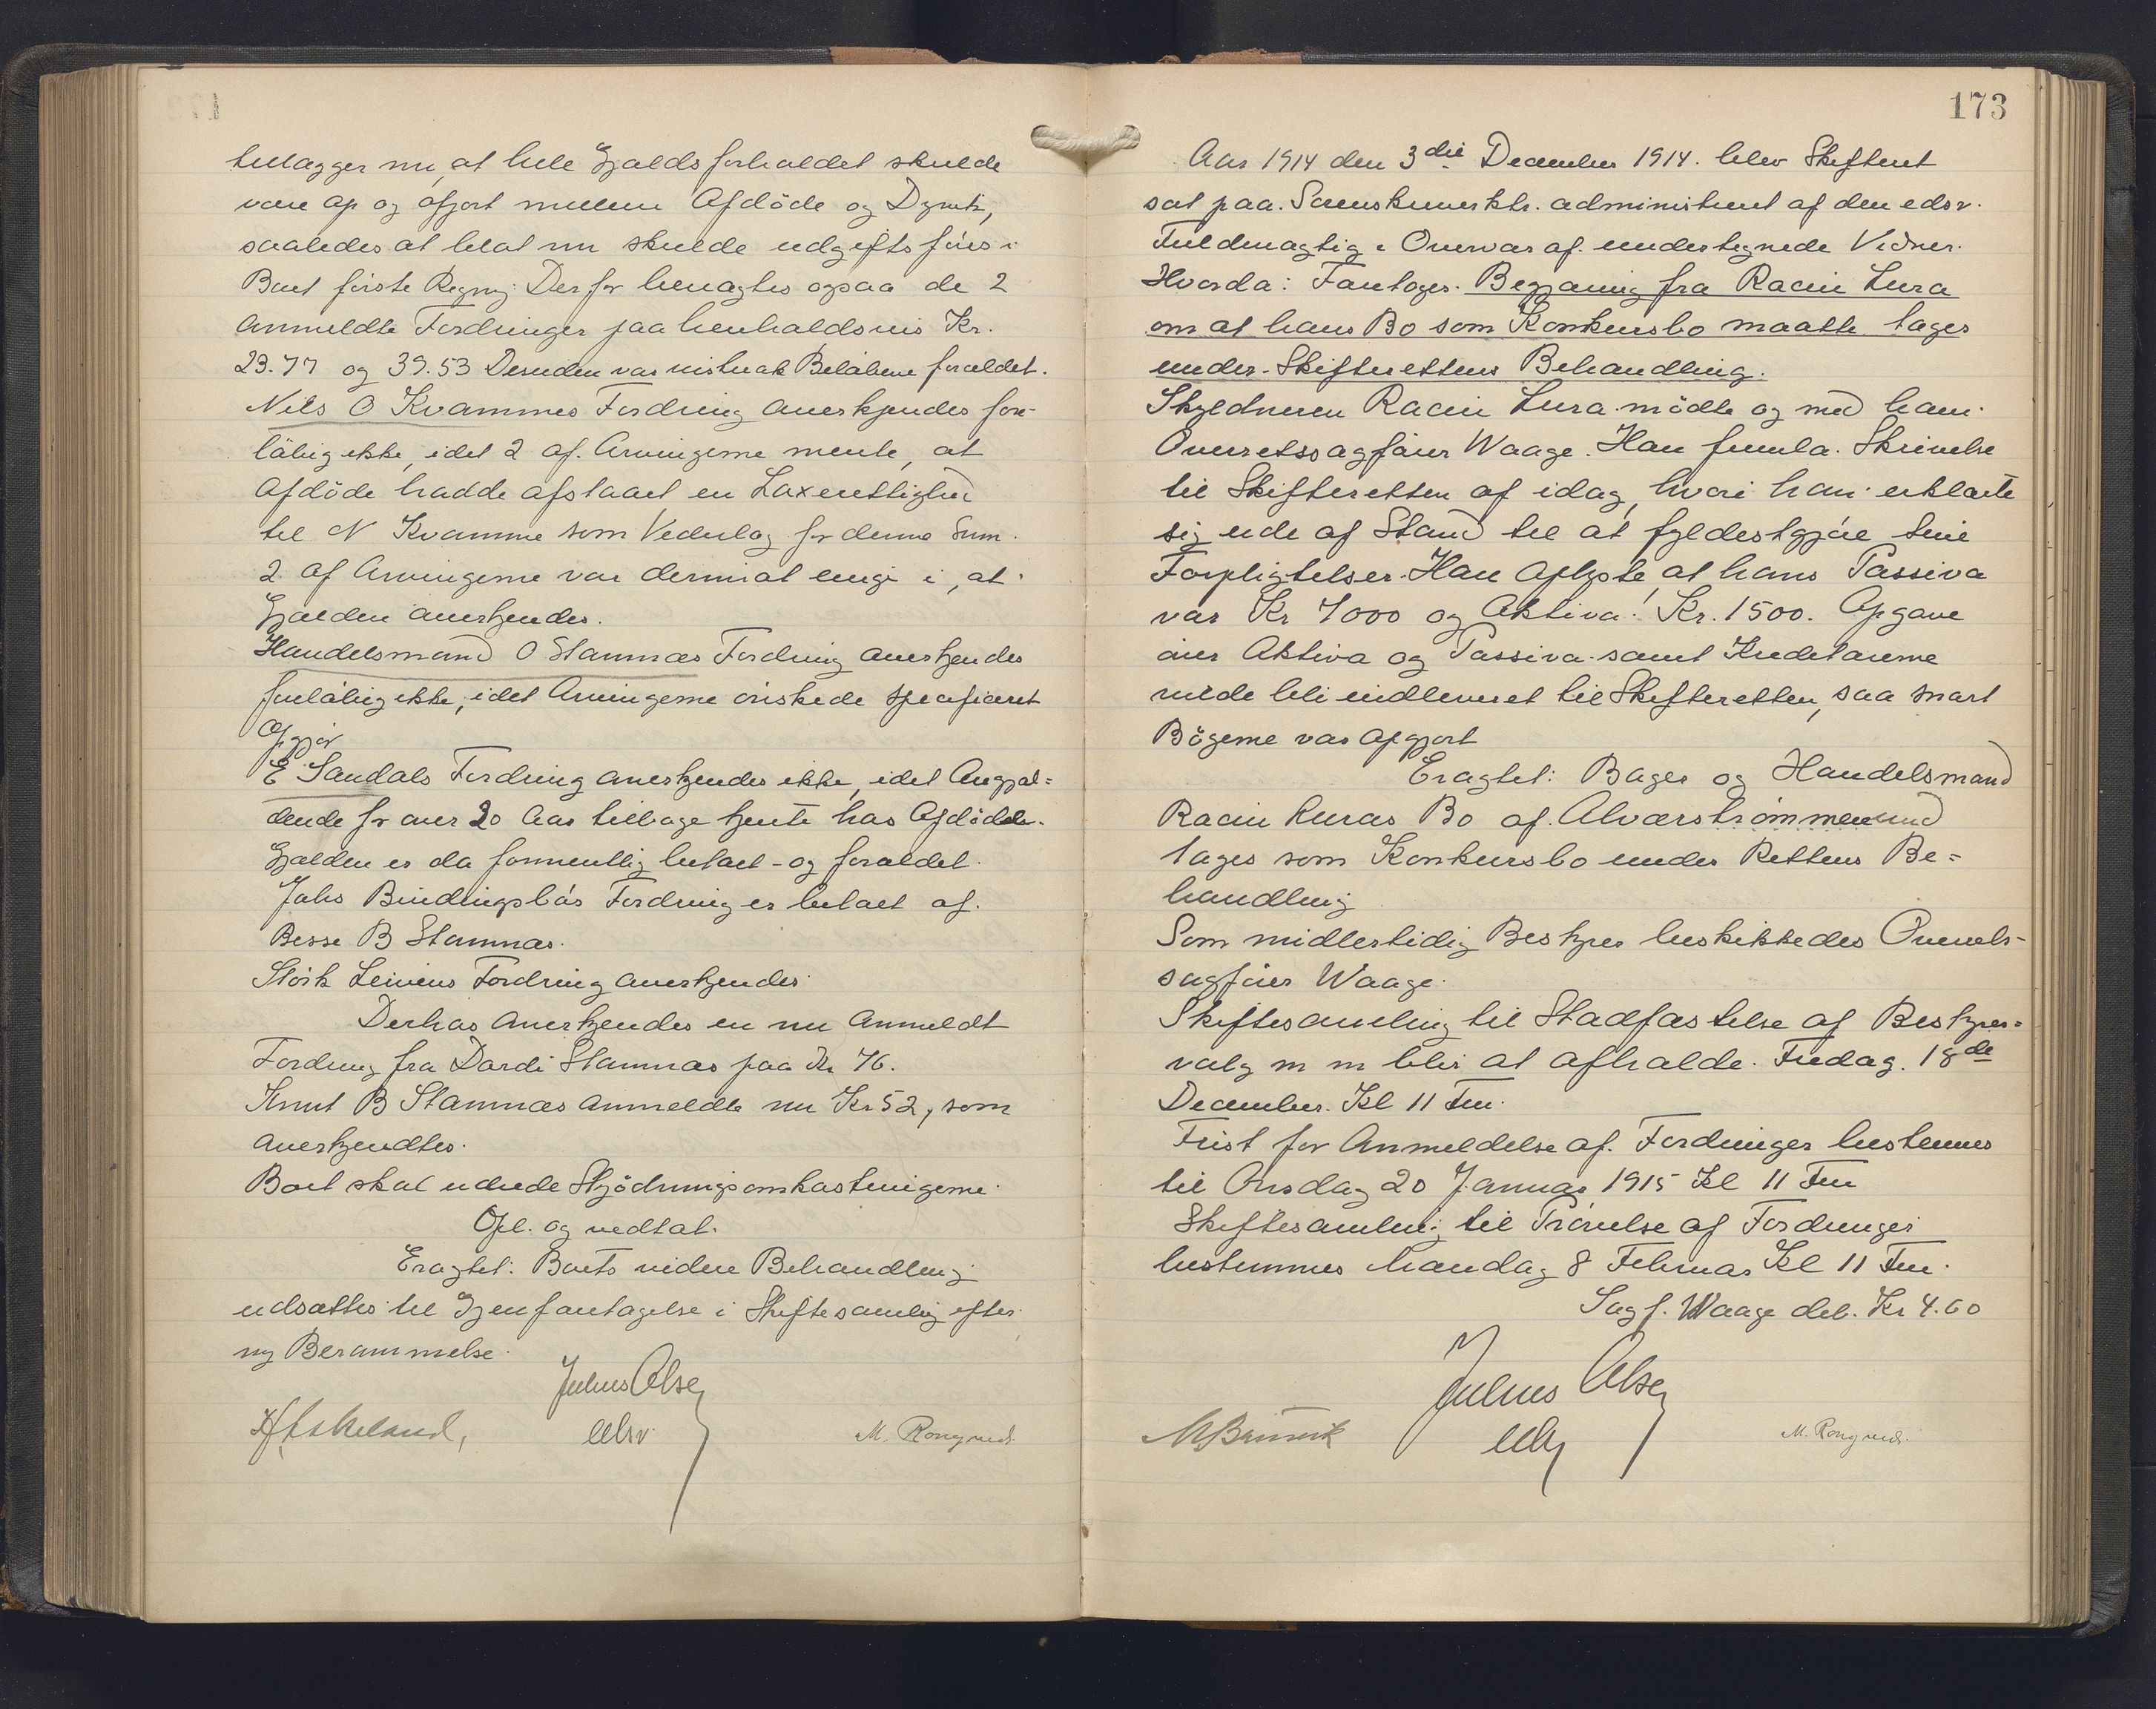 tillægger nu, at hele Gjældsforholdet skulde
være op og afgjort mellem Afdöde og Dymtz,
saaledes at blot nu skulde udgiftsføres i
Boet første Regng. Derfor benægtes ogsaa de 2
anmeldte Fordringer paa henholdsvis Kr.
23.77 og 39.53 Desuden var vistnok Beløbene forældet.
Nils O Kvammes Fordring anerkjendes fore-
löbig ikke, idet 2 af Arvingerne mente, at
Afdöde hadde afstaaet en Laxerettighed
til N Kvamme som Vederlag for denne Sum.
2 af Arvingerne var derimot enige i, at
Gjælden anerkjendes.
Handelsmand O Stamnæs Fordring anerkjendes
foreløbig ikke, idet Arvingerne ønskede specificeret
Opgjør
E Sandals Fordring anerkjendes ikke, idet Angjæl=
dende for over 20 Aar tilbage tjente hos Afdöde.
Gjælden er da formentlig betalt - og forældet.
Johs Bindingsbøs Fordring er betalt af
Besse B Stamnæs.
Störk Leivens Fordring anerkjendes
Derhos anerkjendes en nu anmeldt
Fordring fra Dardi Stamnæs paa Kr 76.
Knut B Stamnæs anmeldte nu Kr 52, som
anerkjendtes.
Boet skal udrede Skjödningsomkostningerne.
Opl. og vedtat.
Eragtet: Boets videre Behandling
udsættes til Gjenforetagelse i Skiftesamling efter
ny Berammelse.
Julius Olsen
edsv.
H Askeland, M. Rong vids.
173
Aar 1914 den 3die December 1914. blev Skifteret
sat paa Sorenskriverktr. administreret af den edsv.
Fuldmægtig i Overvær af undertegnede Vidner.
Hvorda: Foretoges. Begjæring fra Racin Lura
om at hans Bo som Konkursbo maatte tages
under Skifterettens Behandling.
Skyldneren Racin Lura mödte og med ham
Overretssagfører Waage. Han fremla Skrivelse
til Skifteretten af idag, hvori han erklærte
sig ude af Stand til at fyldestgjøre sine
Forpligtelser. Han oplyste, at hans Passiva
var Kr 7000 og Aktiva: Kr. 1500. Opgave
over Aktiva og Passiva samt Kreditorerne
vilde bli indleveret til Skifteretten, saa snart
Bögerne var opgjort
Eragtet: Bager og Handelsmand
Racin Luras Bo af Alværströmmen
tages som Konkursbo under Rettens Be=
handling
Som midlertidig Bestyrer beskikkedes Overrets-
sagfører Waage.
Skiftesamling til Stadfæstelse af Bestyrer=
valg m m blir at afholde Fredag 18de
December Kl 11 Fm.
Frist for Anmeldelse af Fordringer bestemmes
til Onsdag 20 Januar 1915 Kl 11 Fm
Skiftesamling til Prøvelse af Fordringer
bestemmes Mandag 8 Februar Kl 11 Fm.
Sagf. Waage deb. Kr 4.60
Julius Olsen
edsv
M. Rong vids.